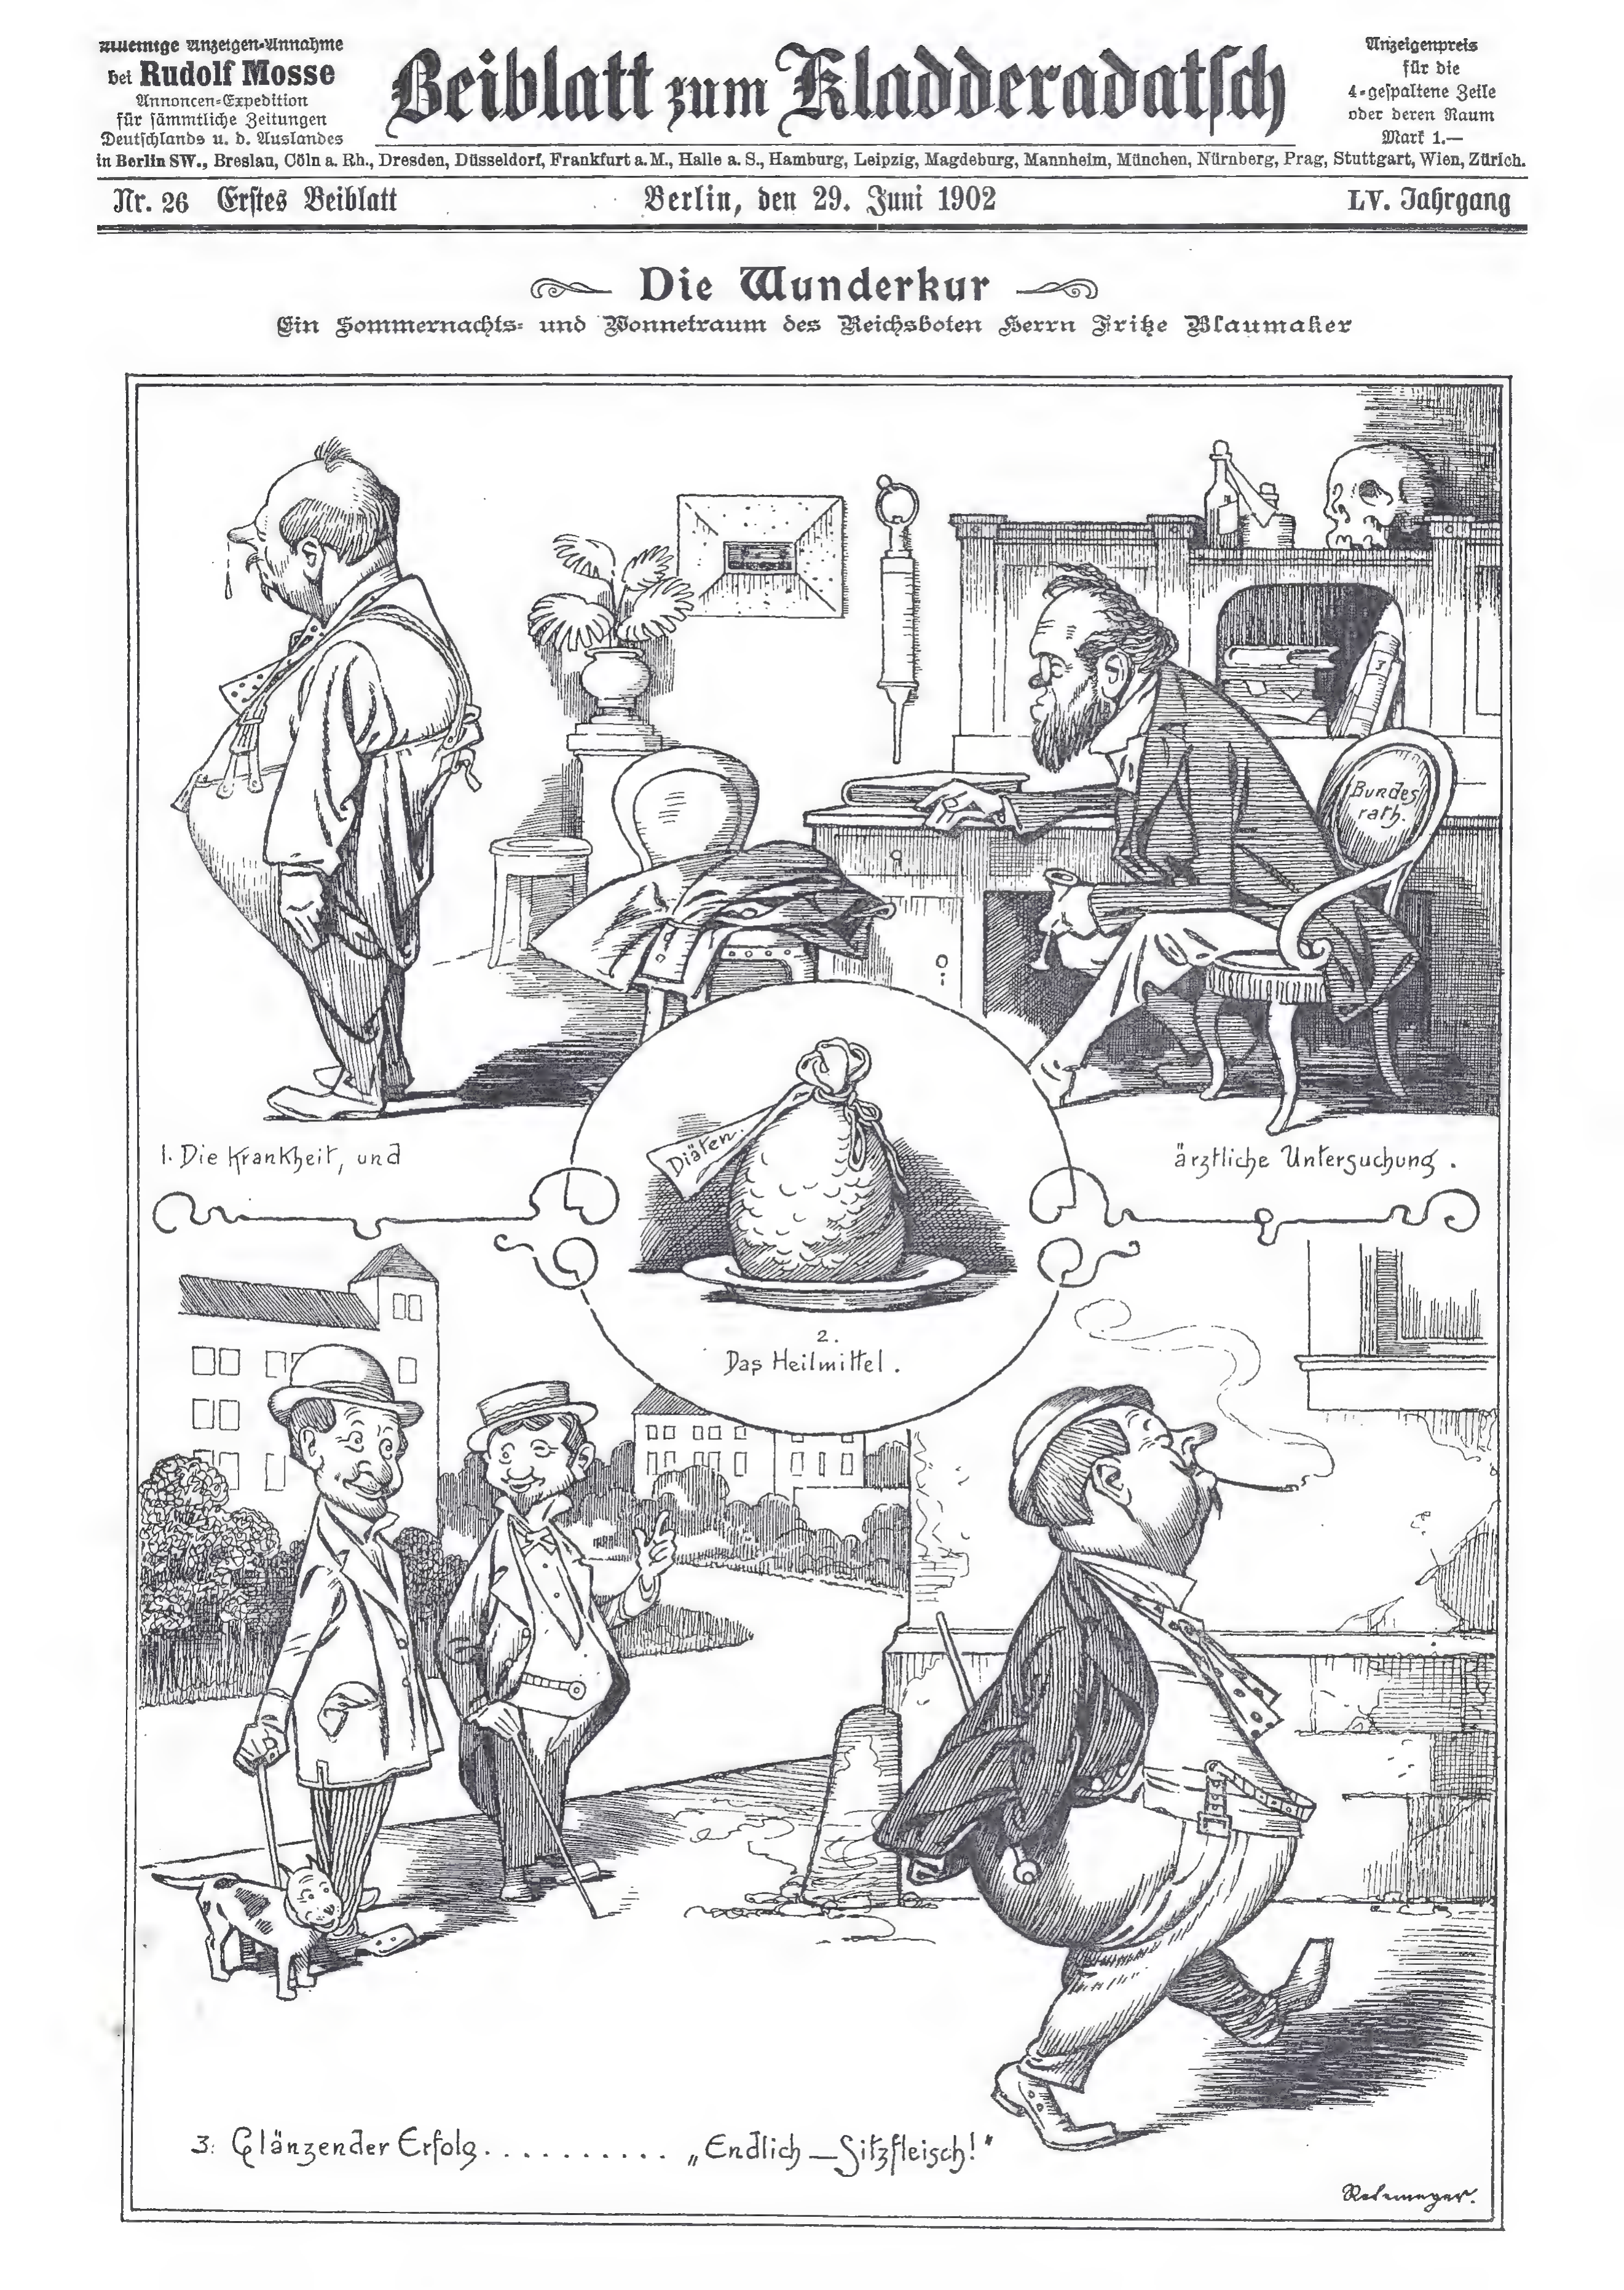 Alleinige Anzeigen-Annahme
bei Rudolf Mosse
Annoncen-Expedition
für sämmtliche Zeitungen
Deutschlands u. d. Auslandes
Beiblatt zum Kladderadatsch
Anzeigenpreis
für die
4-gespaltene Zeile
oder deren Raum
Mark 1.—
in Berlin SW., Breslau, Cöln a. Rh., Dresden, Düsseldorf, Frankfurt a. M., Halle a. S., Hamburg, Leipzig, Magdeburg, Mannheim, München, Nürnberg, Prag, Stuttgart, Wien, Zürich.
Nr. 26 Erstes Beiblatt
Berlin, den 29. Juni 1902
LV. Jahrgang
Die Wunderkur
Ein Sommernachts- und Wonnetraum des Reichsboten Herrn Fritze Blaumaker
Bundes
rath.
1. Die Krankheit, und
ärztliche Untersuchung.
Diäten.
2.
Das Heilmittel.
3. Glänzender Erfolg.......... „Endlich — Sitzfleisch!"